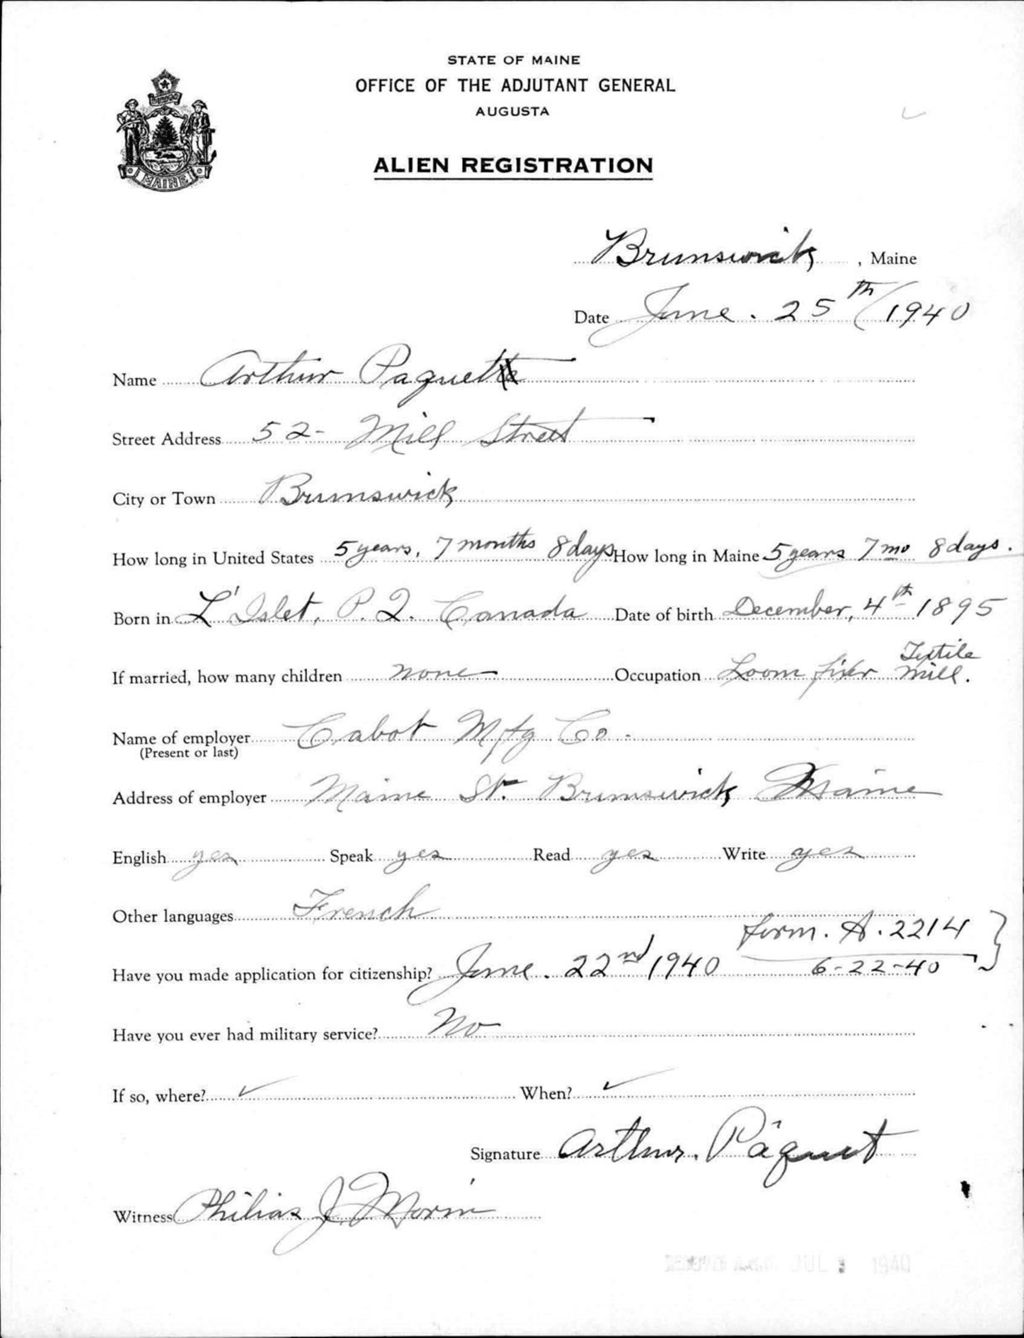 STATE OF MAINE
OFFICE OF THE ADJUTANT GENERAL
AUGUSTA
ALIEN REGISTRATION
MAINE
Brunswick, Maine
Date June. 25th 1940
Name Arthur Paquet
Street Address 52- Mill Street
City or Town Brunswick
How long in United States 5 years, 7 months 8 days How long in Maine 5 years 7 mo 8 days.
Born in L'Islet, P.Q. Canada Date of birth December, 4th 1895
If married, how many children none Occupation Loom fixer Textile mill.
Name of employer Cabot Mfg Co.
(Present or last)
Address of employer Maine St. Brunswick Maine
English yes Speak yes Read yes Write yes
Other languages French
form. A. 2214
Have you made application for citizenship? June. 22nd 1940 6-22-40
Have you ever had military service? No
If so, where? ✓ When? ✓
Signature Arthur. Paquet
Witness Philias J. Morin
JUL 1940